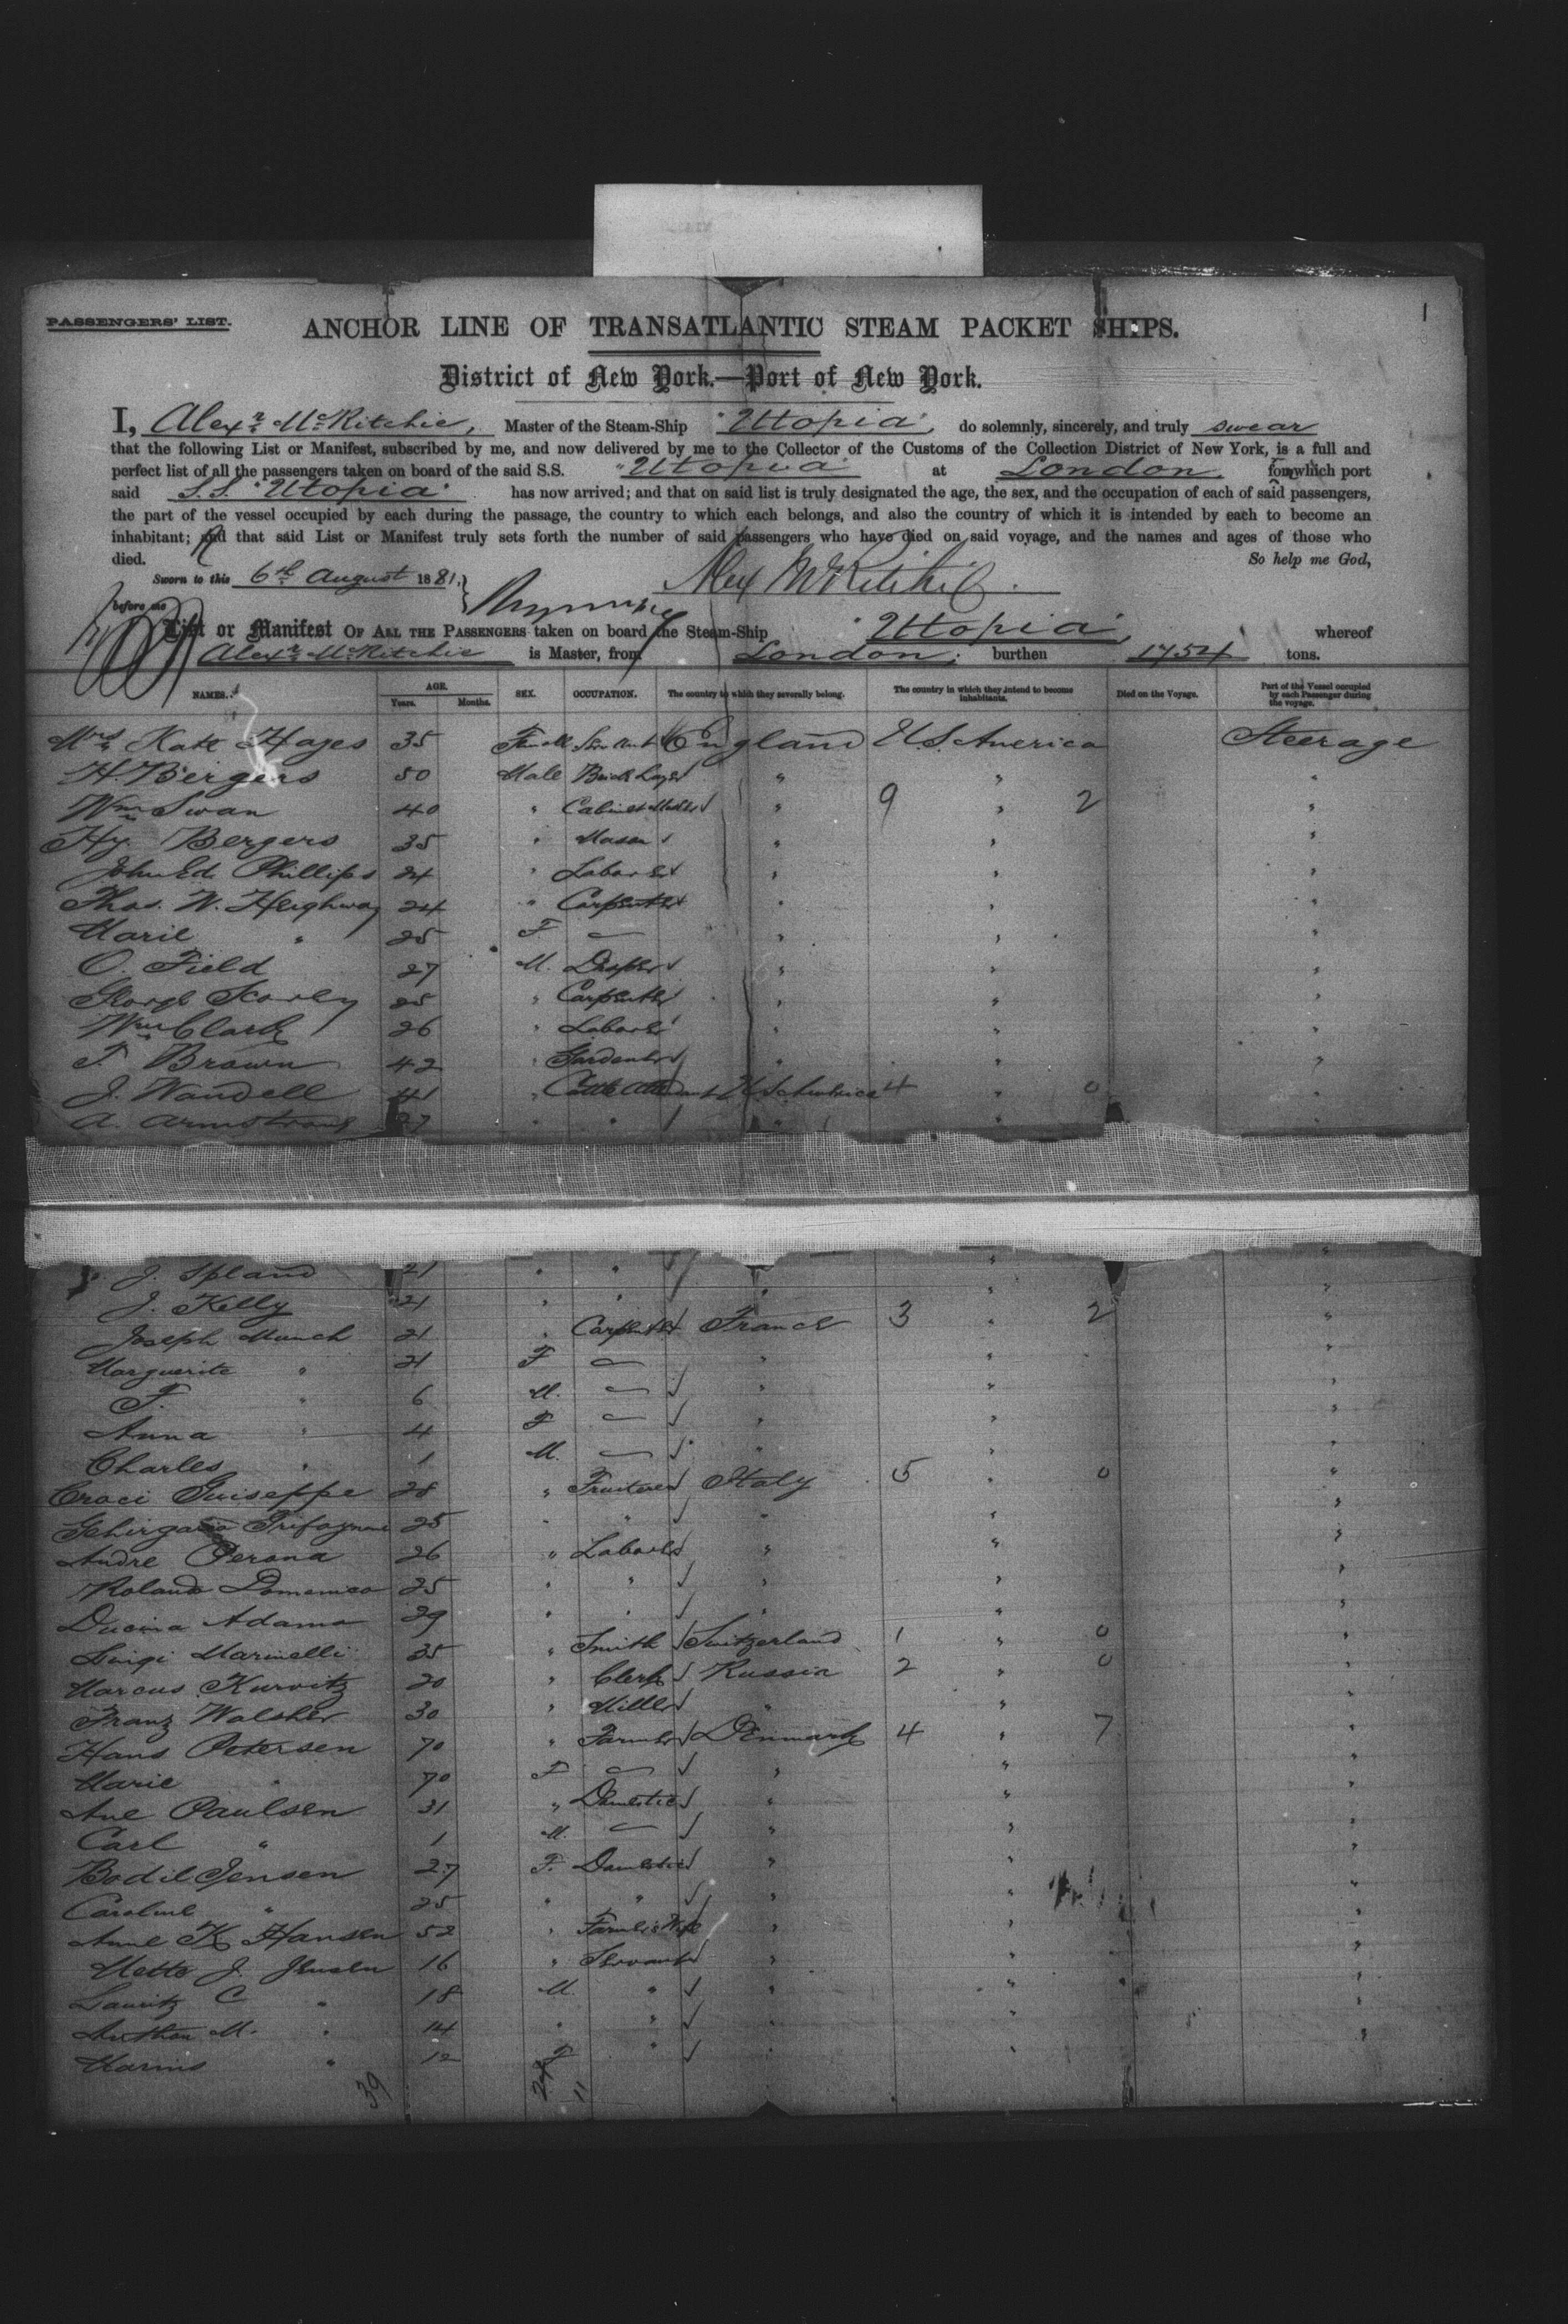 1
PASSENGERS' LIST.
ANCHOR LINE OF TRANSATLANTIC STEAM PACKET SHIPS.
District of New York.—Port of New York.
I, Alexr. McRitchie, Master of the Steam-Ship "Utopia", do solemnly, sincerely, and truly swear
that the following List or Manifest, subscribed by me, and now delivered by me to the Collector of the Customs of the Collection District of New York, is a full and
perfect list of all the passengers taken on board of the said S.S. "Utopia" at London from which port
said S.S. "Utopia" has now arrived; and that on said list is truly designated the age, the sex, and the occupation of each of said passengers,
the part of the vessel occupied by each during the passage, the country to which each belongs, and also the country of which it is intended by each to become an
inhabitant; and that said List or Manifest truly sets forth the number of said passengers who have died on said voyage, and the names and ages of those who
died. So help me God,
Sworn to this 6th August 1881. Alex McRitchie
before me
List or Manifest OF ALL THE PASSENGERS taken on board the Steam-Ship "Utopia", whereof
Alexr. McRitchie is Master, from London, burthen 1754 tons.
NAMES. AGE. Years. Months. SEX. OCCUPATION. The country to which they severally belong. The country in which they intend to become inhabitants. Died on the Voyage. Part of the Vessel occupied by each Passenger during the voyage.
Mrs Kate Hayes 35 Female Servant England U.S. America Steerage
H. Bergers 50 Male Brick Layer " " "
Wm Swan 40 " Cabinet Maker " 9 " 2 "
Hy. Bergers 35 " Mason " " "
John Ed. Phillips 24 " Laborer " " "
Thos. W. Heighway 24 " Carpenter " " "
Marie " 25 F — " " "
O. Field 27 M. Draper " " "
George 25 " Carpenter " " "
Wm Clark 26 " Laborer " " "
F. Brown 42 " Gardener " " "
J. Wandell 41 " Cattle Attendant U.S. America 4 " 0 "
A. Armstrong 27 " " " " "
J. Spland 21 " " " " "
J. Kelly 21 " " " " "
Joseph Munch 21 " Carpenter France 3 " 2 "
Marguerite " 21 F — " " "
F. " 6 M. — " " "
Anna " 4 F — " " "
Charles " 1 M. — " " "
Croci Guiseppe 28 " Fruiterer Italy 5 " 0 "
25 " " " " "
Andre Perona 26 " Laborer " " "
Rolando Domenico 25 " " " " "
Adamo 29 " " " " "
Luigi Marinelli 35 " Smith Switzerland 1 " 0 "
Marcus Kurvitz 20 " Clerk Russia 2 " 0 "
Franz Walsher 30 " Miller " " "
Hans Petersen 70 " Farmer Denmark 4 " 7 "
Marie " 70 F — " " "
Ane Paulsen 31 " Domestic " " "
Carl " 1 M. — " " "
Bodil Jensen 27 F. Domestic " " "
Caroline " 25 " " " " "
Anne K Hansen 52 " Farmer's Wife " " "
Mette J. Jensen 16 " Servant " " "
Lauritz C " 18 M. " " " "
Anthon M. " 14 " " " " "
" 12 F " " " "
39 28 11